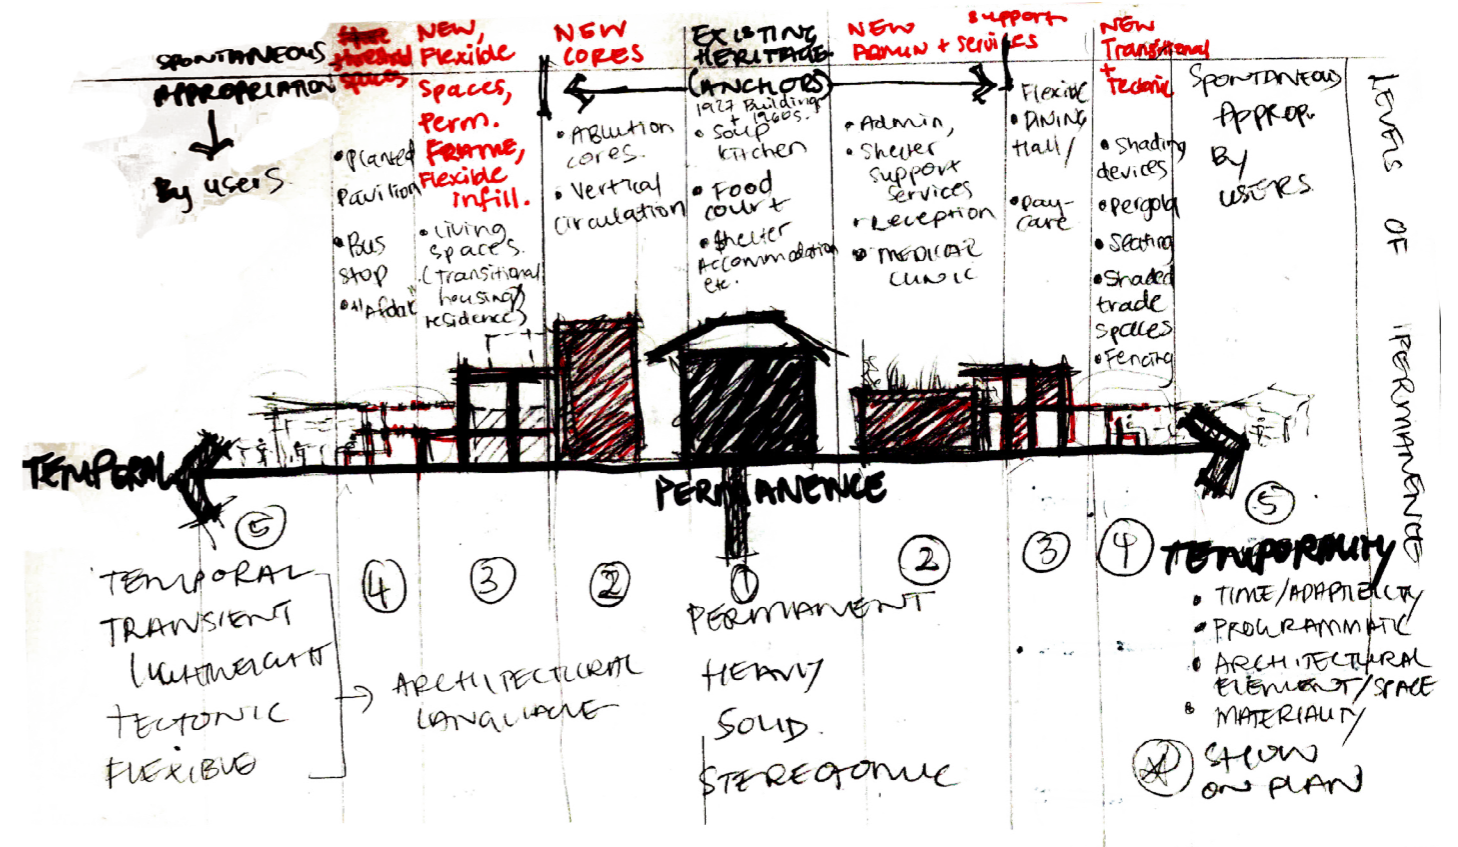 SPONTANEOUS
APPROPRIATION
By users
threshold
spaces
• Planted
Pavilion
• Bus
stop
NEW,
Flexible
Spaces,
Perm.
FRAME,
Flexible
infill.
• Living
spaces.
(Transitional
housing
residences)
NEW
CORES
• ABlution
cores.
• Vertical
circulation
EXISTING
HERITAGE
(ANCHORS)
1927 Building
+ 1960s.
• Soup
kitchen
• Food
court
• Shelter
Accommodation
etc.
NEW
ADMIN + services
support
• Admin,
• Shelter
support
services
• Reception
• MEDICAL
CLINIC
Flexible
• DINING
Hall/
• Day-
care
NEW
Transitional
+
Tectonic
• Shading
devices
• pergola
• Seating
• Shaded
trade
spaces
• Fencing
SPONTANEOUS
Approp.
By
users
LEVELS OF PERMANENCE
TEMPORAL
PERMANENCE
TEMPORALITY
5
4
3
2
1
2
3
4
5
TEMPORAL
TRANSIENT
LIGHTWEIGHT
TECTONIC
FLEXIBLE
ARCHITECTURAL
LANGUAGE
PERMANENT
HEAVY
SOLID.
STEREOTOMIC
• TIME/ADAPTIBILITY
• PROGRAMMATIC
• ARCHITECTURAL
ELEMENT/SPACE
• MATERIALITY
SHOW
ON PLAN